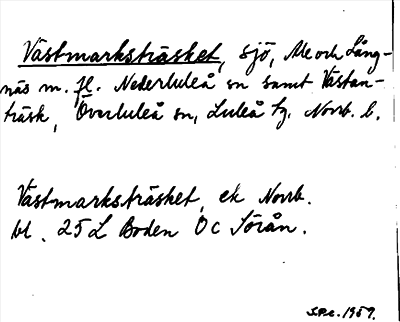 Västmarksträsket, sjö, Ale och Lång-
näs m. fl. Nederluleå sn samt Västan-
träsk, Överluleå sn, Luleå tg. Norrb. l.
Västmarksträsket, ek Norrb.
bl. 25 L Boden 0c Sörån.
1959.